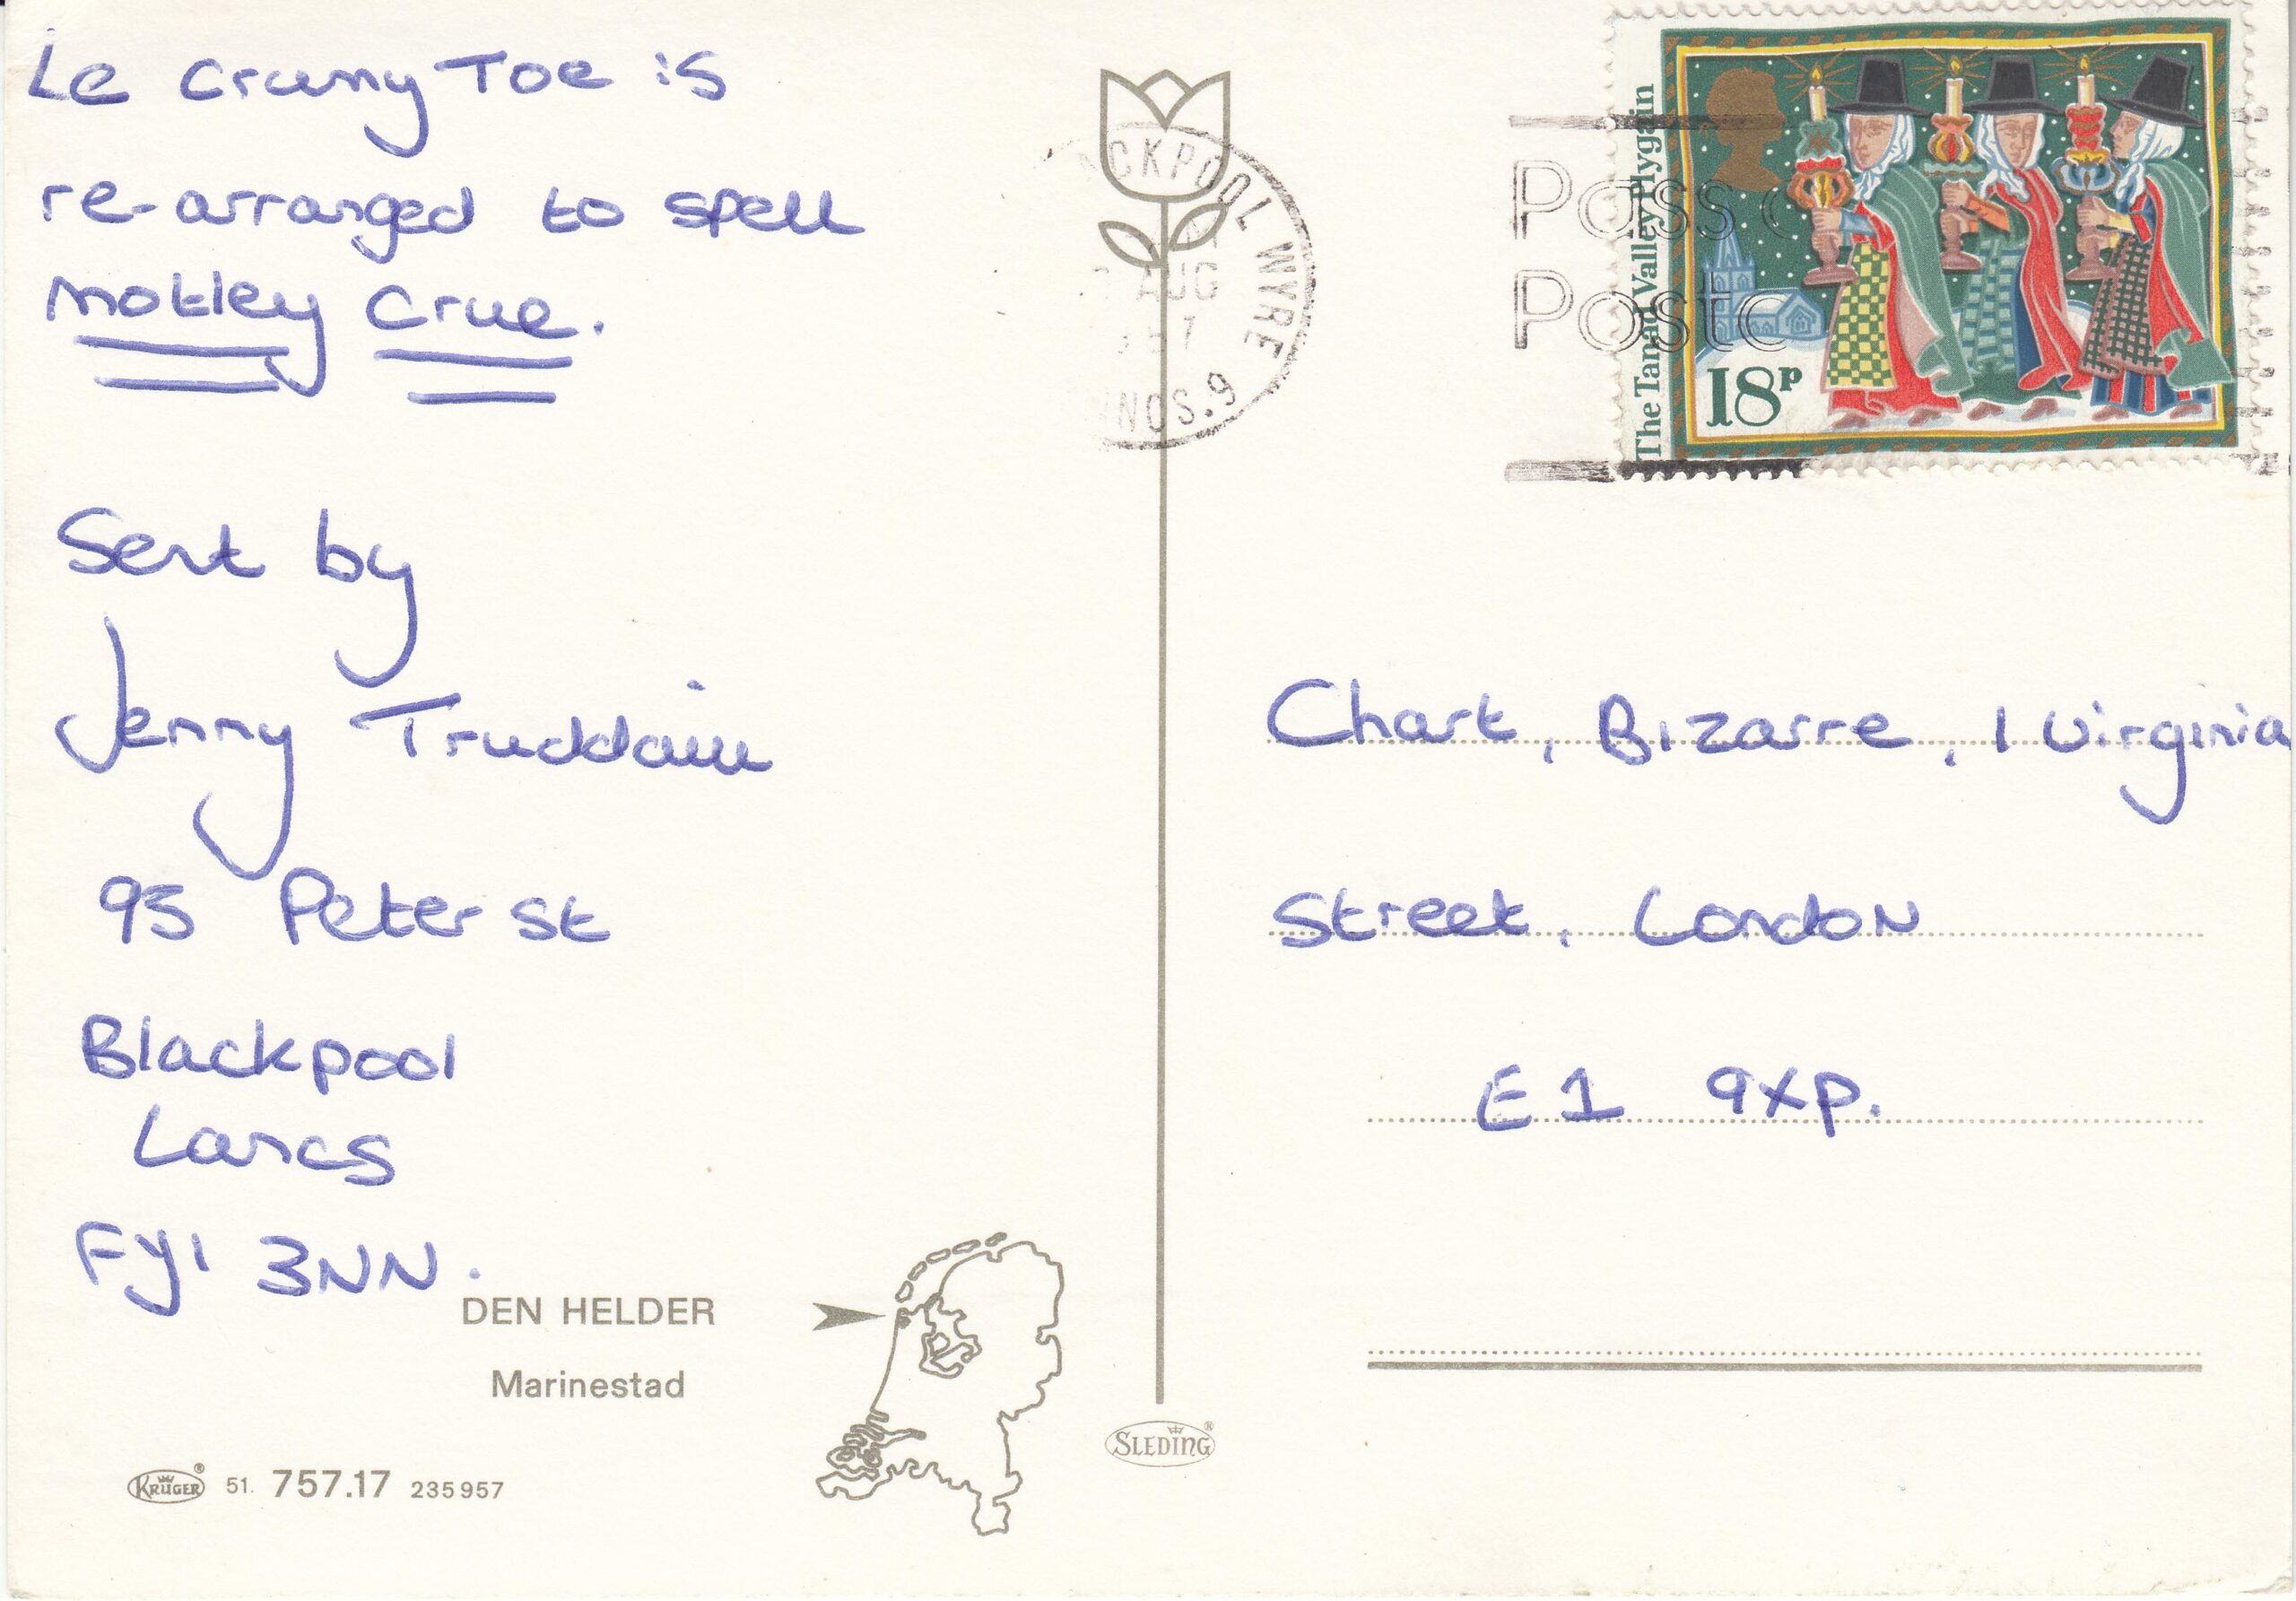 Le crumy Toe is
re-arranged to spell
Motley Crue.
Sent by
Jenny
95 Peter St
Blackpool
Lancs
FY1 3NN.
DEN HELDER
Marinestad
KRÜGER® 51. 757.17 235957
CKPOOL WYRE
AUG
7
INGS.9
SLEDING®
Pass
Postc
The Tanad Valley Plygain
18P
Chart, Bizarre, 1 Virginia
Street, London
E1 9XP.